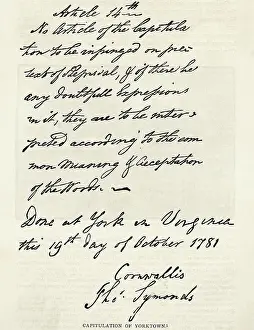 Article 14th
No Article of the Capitula
tion to be infringed on pre
text of Reprisal, & if there be
any doubtfull Expressions
in it, they are to be inter
preted according to the com
mon Meaning & Acceptation
of the Words.
Done at York in Virginia
this 19th day of October 1781
Cornwallis
Thos. Symonds
CAPITULATION OF YORKTOWN.